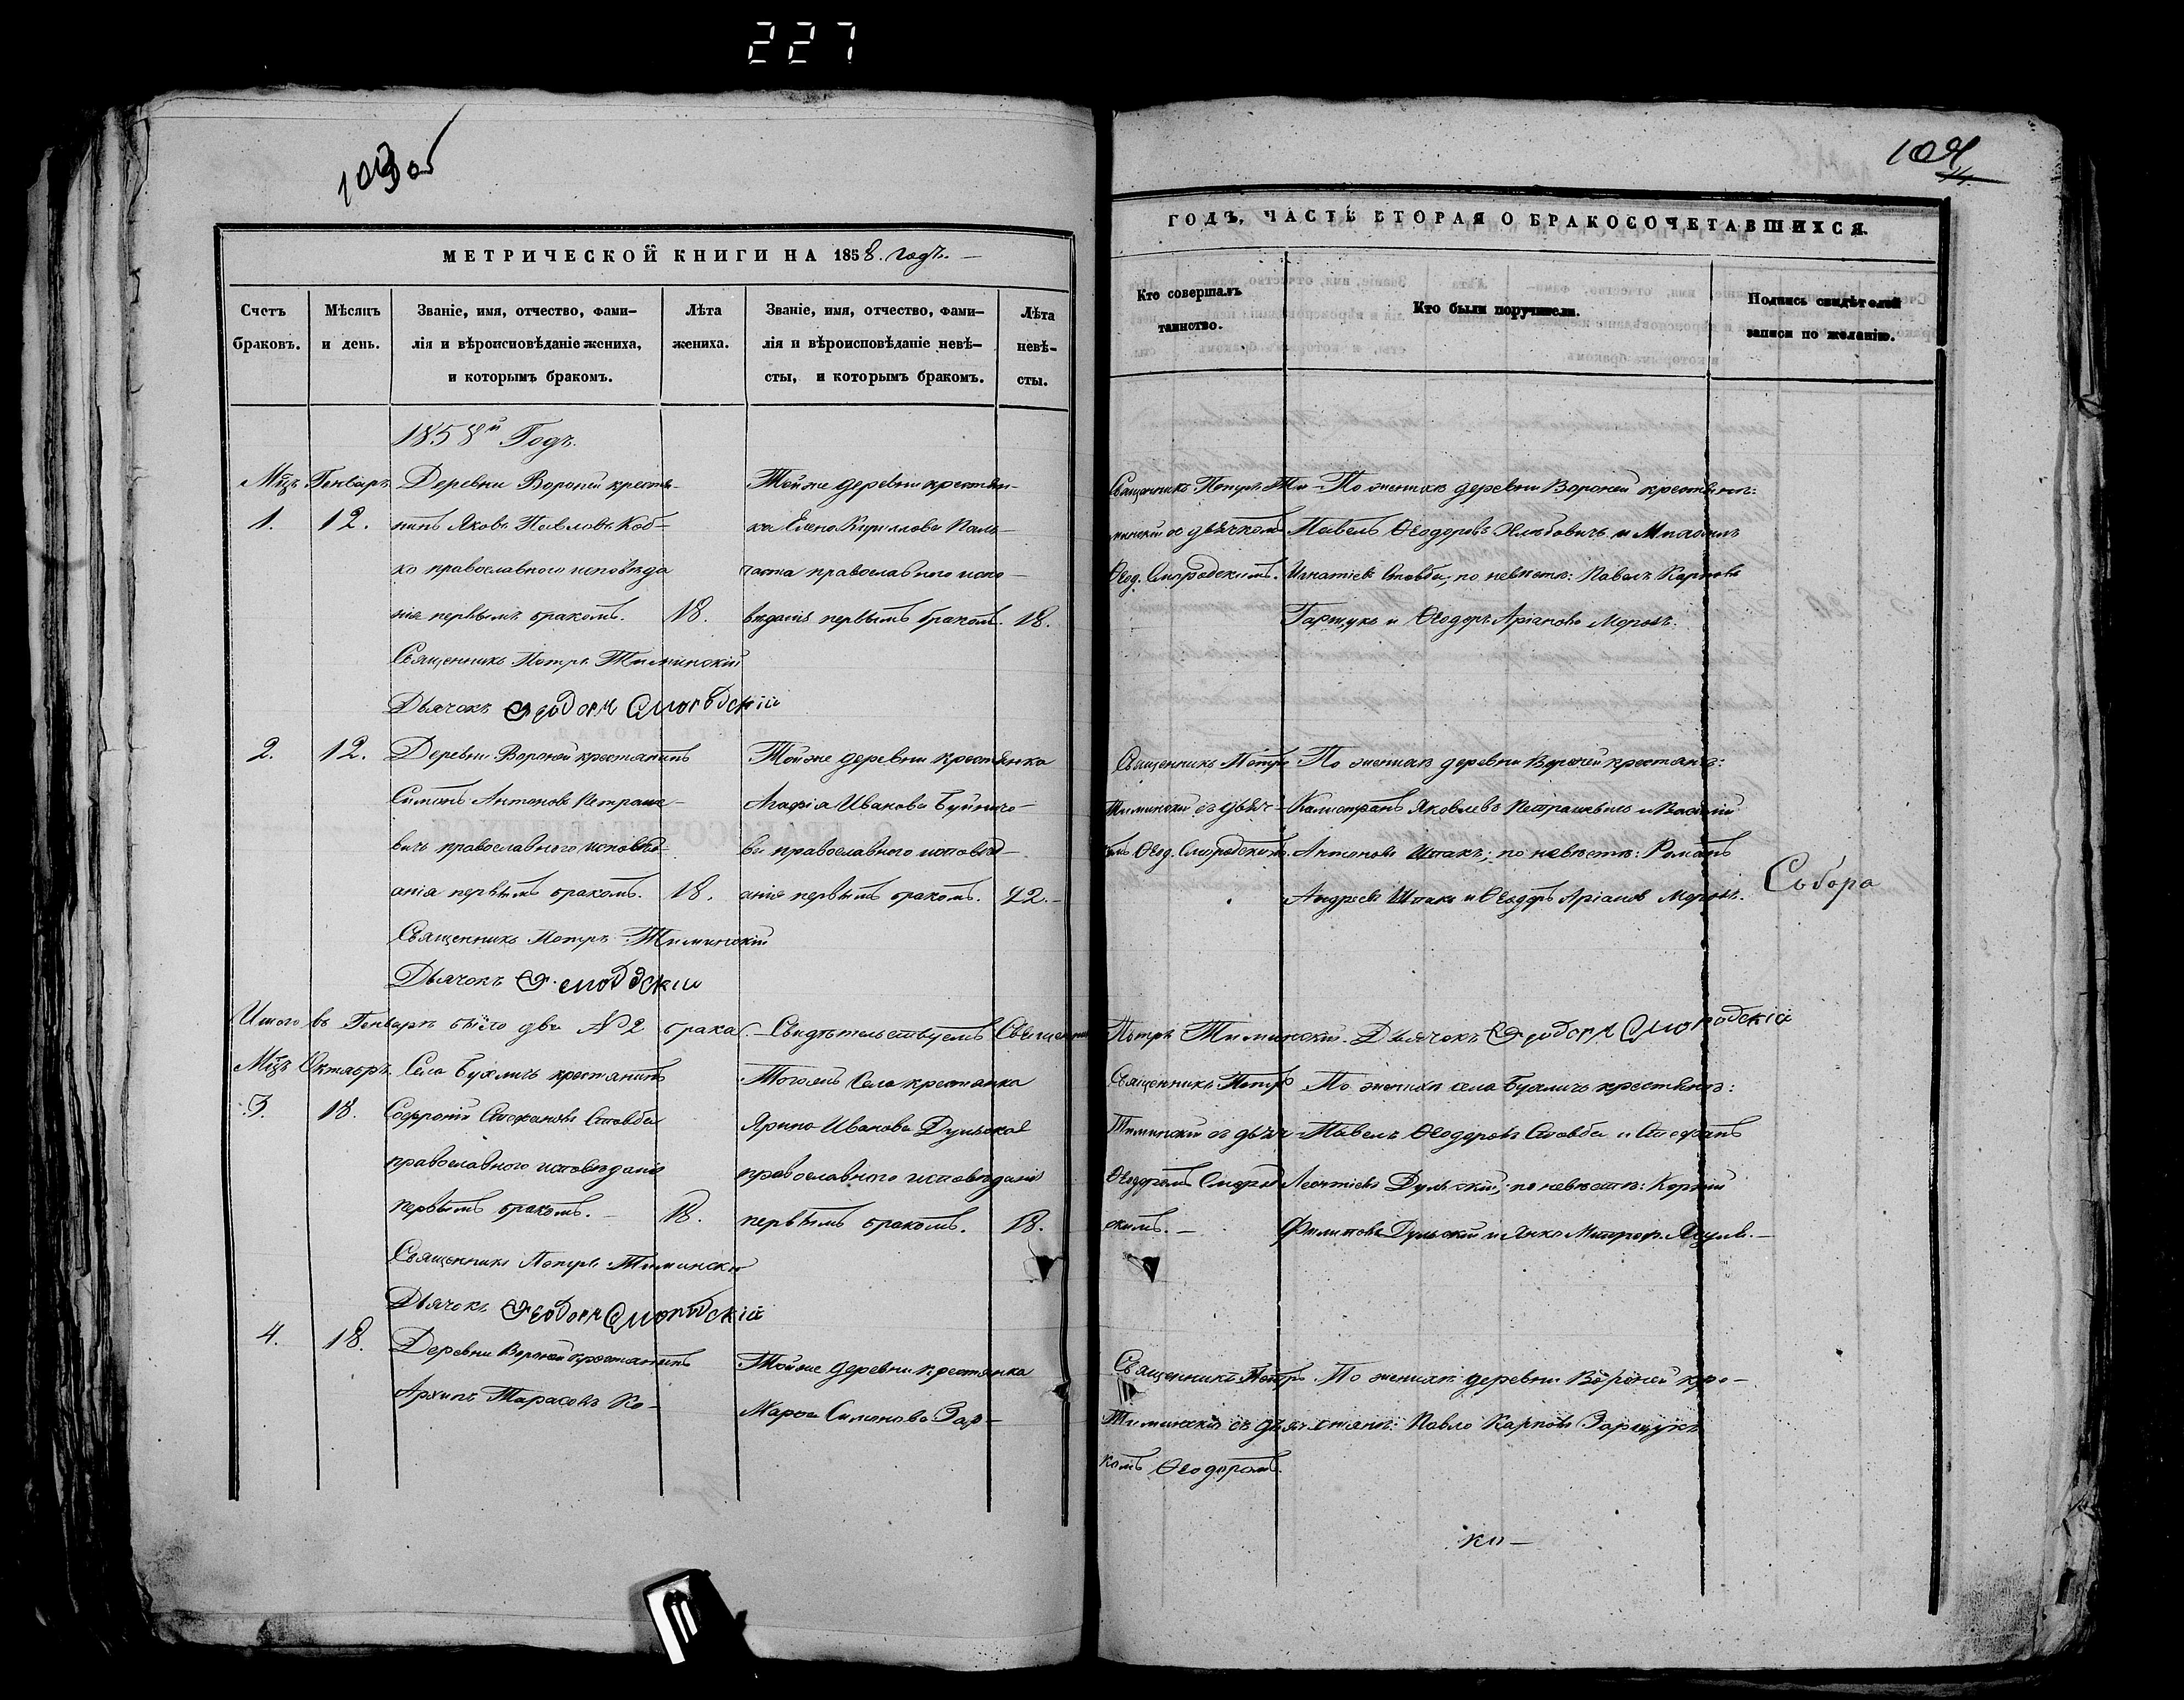 227
103 об
104
МЕТРИЧЕСКОЙ КНИГИ НА 1858. годъ.
Счетъ браковъ.
Мѣсяцъ и день.
Званіе, имя, отчество, фами-
лія и вѣроисповѣданіе жениха,
и которымъ бракомъ.
Лѣта
жениха.
Званіе, имя, отчество, фами-
лія и вѣроисповѣданіе невѣ-
сты, и которымъ бракомъ.
Лѣта
невѣ-
сты.
1858й Годъ.
Мцъ Генварь Деревни Вороней крестья-
1. 12. нинъ Яковъ Павловъ Коб-
ко православнаго исповѣда
нія первымъ бракомъ. 18.
Священникъ Петръ Тиминскій
Дьячокъ Ѳеодоръ Смородскій
Тойже деревни крестьян-
ка Елена Кириллова Паль-
православнаго испо-
вѣданія первымъ бракомъ. 18.
2. 12. Деревни Вороней крестьянинъ
Симонъ Антоновъ Петраше-
вичъ православнаго исповѣд-
анія первымъ бракомъ. 18.
Священникъ Петръ Тиминскій
Дьячокъ Ѳ. Смородскій
Тойже деревни крестьянка
Агафіа Иванова
ва православнаго исповѣд-
анія первымъ бракомъ. 22.
Итого въ Генварѣ было два № 2 брака. Свидѣтельствуемъ Священникъ
Мцъ Октябрь. Села Бухличъ крестьянинъ
3. 18. Софроній Стефановъ Стовба
православнаго исповѣданія
первымъ бракомъ. 18.
Священникъ Петръ Тиминскій
Дьячокъ Ѳеодоръ Смородскій
Тогожъ Села крестьянка
Ярина Иванова Дульская
православнаго исповѣданія
первымъ бракомъ. 18.
4. 18. Деревни Вороней крестьянинъ
Архипъ Тарасовъ Ко-
Тойже деревни крестьянка
Марѳа Симонова Зар-
ГОДЪ, ЧАСТЬ ВТОРАЯ О БРАКОСОЧЕТАВШИХСЯ.
Кто совершалъ
таинство.
Кто были поручители.
Подпись свидѣтелей
записи по желанію.
Священникъ Петръ Ти-
минскій съ дьячкомъ
Ѳеод. Смородскимъ.
По женихѣ деревни Вороней крестьяне:
Павелъ Ѳеодоровъ и Михаилъ
Игнатіевъ Стовба; по невѣстѣ: Павелъ Карповъ
Гарщукъ и Ѳеодоръ Аріановъ Морозъ.
Священникъ Петръ
Тиминскій съ дьяч-
комъ Ѳеод. Смородскимъ.
По женихѣ деревни Вороней крестьяне:
Яковлевъ Петрашевичъ и Василій
Антоновъ Шпакъ; по невѣстѣ: Романъ
Андреевъ Шпакъ и Ѳеодоръ Аріановъ Морозъ.
Собора
Петръ Тиминскій. Дьячокъ Ѳеодоръ Смородскій
Священникъ Петръ
Тиминскій съ дьяч
Ѳеодоромъ Смород
скимъ.
По женихѣ села Бухличъ крестьяне:
Павелъ Ѳеодоровъ Стовба и Стефанъ
Леонтіевъ Дульскій; по невѣстѣ: Корній
Филиповъ Дульскій и Янко Митроф.
Священникъ Петръ
Тиминскій съ дьяч
комъ Ѳеодоромъ
По женихѣ деревни Вороней кре-
стьяне: Павло Карповъ Зарщукъ
ко-